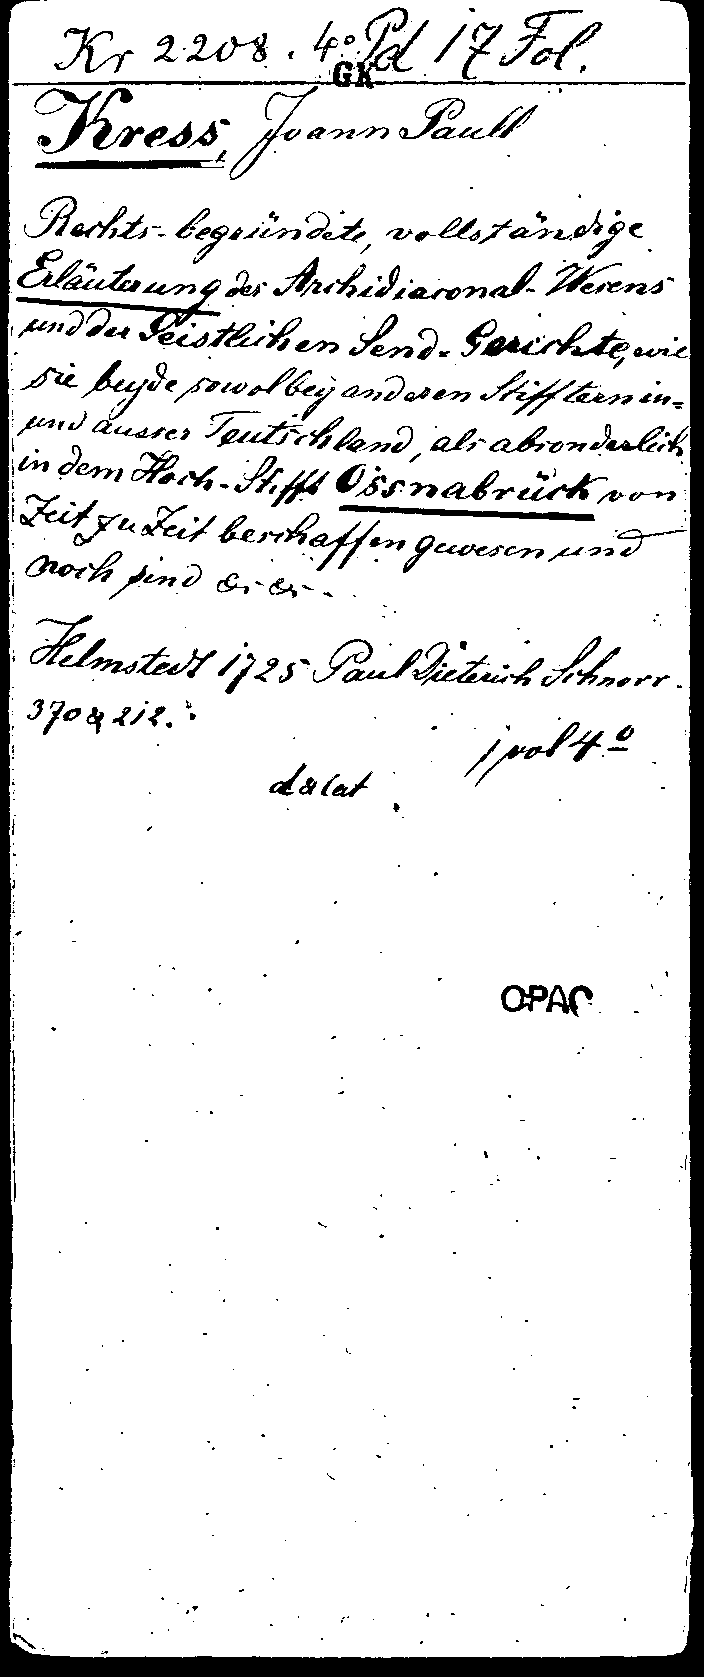 Kr 2208. 4° Pd 17 Fol.
GK
Kress, Joann Paull
Rechts-begründete, vollständige
Erläuterung des Archidiaconal-Wesens
und der Geistlichen Send-Gerichte, wie
sie beyde sowol bey anderen Stifftern in-
und ausser Teutschland, als absonderlich
in dem Hoch-Stifft Ossnabrück von
Zeit zu Zeit beschaffen gewesen und
noch sind &. &. -
Helmstedt 1725 Paul Dieterich Schnorr.
370 & 212.
1 vol 4°
d & lat
OPAC